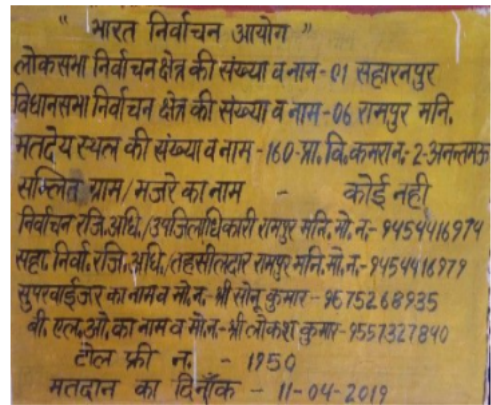 " भारत निर्वाचन आयोग "
लोकसभा निर्वाचन क्षेत्र की संख्या व नाम - 01 सहारनपुर
विधानसभा निर्वाचन क्षेत्र की संख्या व नाम - 06 रामपुर मनि.
मतदेय स्थल की संख्या व नाम - 160-प्रा. वि. कमरा न. 2-अनन्तमऊ
सम्लित ग्राम / मजरे का नाम - कोई नही
निर्वाचन रजि. अधि. / उपजिलाधिकारी रामपुर मनि. मो. न. - 9454416974
सहा. निर्वा. रजि. अधि. / तहसीलदार रामपुर मनि. मो. न. - 9454416979
सुपरवाईजर का नाम व मो. न. - श्री सोनू कुमार - 9675268935
बी. एल. ओ. का नाम व मो. न. - श्री लोकेश कुमार - 9557327840
टोल फ्री न. - 1950
मतदान का दिनाँक - 11-04-2019